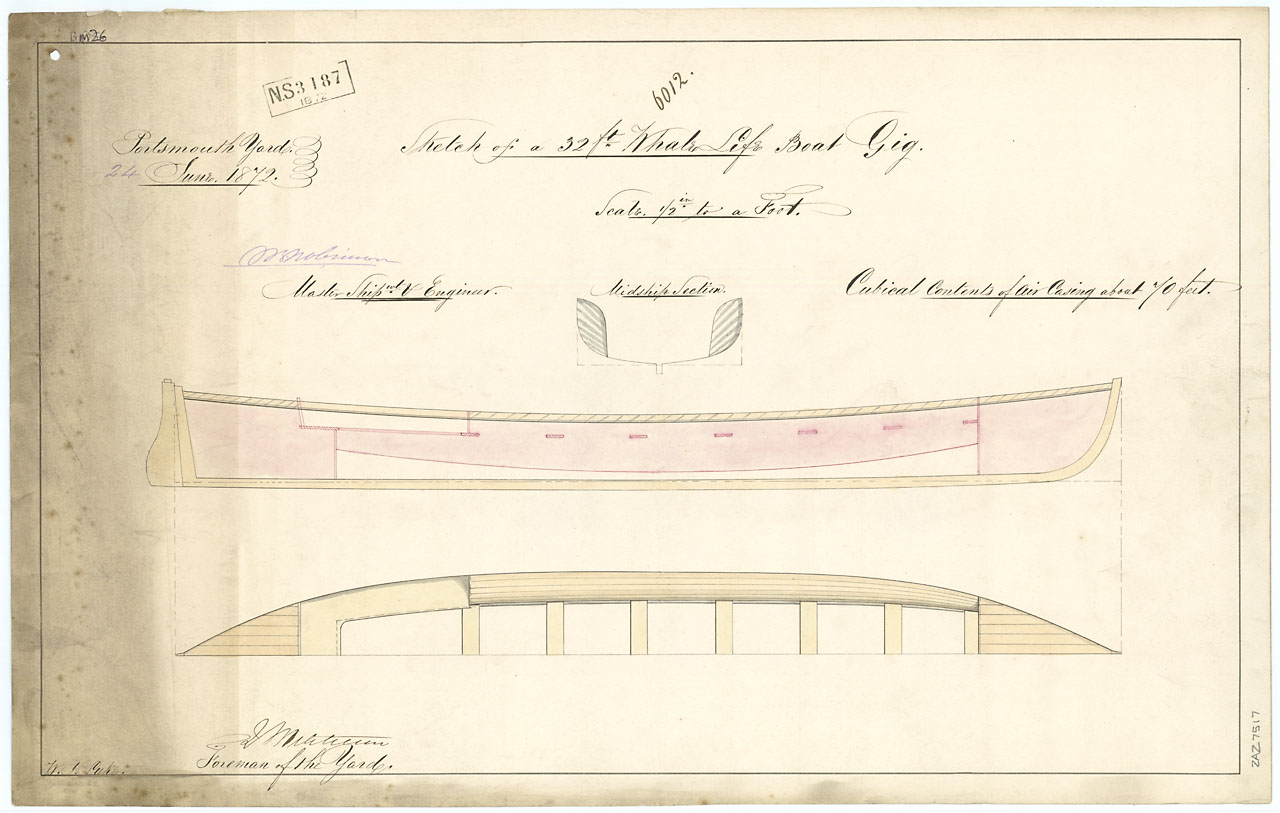 6012.
N.S 3187
1872
Portsmouth Yard.
24 June. 1872.
Sketch of a 32 ft Whale Life Boat Gig.
Scale. 1/2 in to a Foot.
Master Shipwt & Engineer.
Midship Section.
Cubical Contents of Air Casing about 70 feet.
Foreman of the Yard.
ZAZ 7517